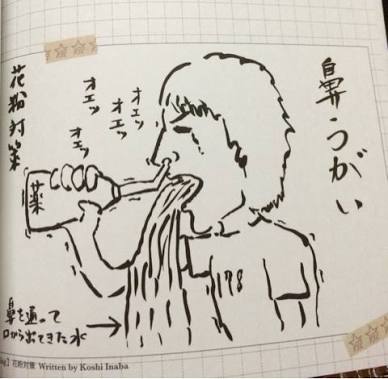 鼻うがい
花粉対策
オエッ
オエッ
オエッ
オエッ
薬
178
鼻を通って
口から出てきた水
】花粉対策 Written by Koshi Inaba